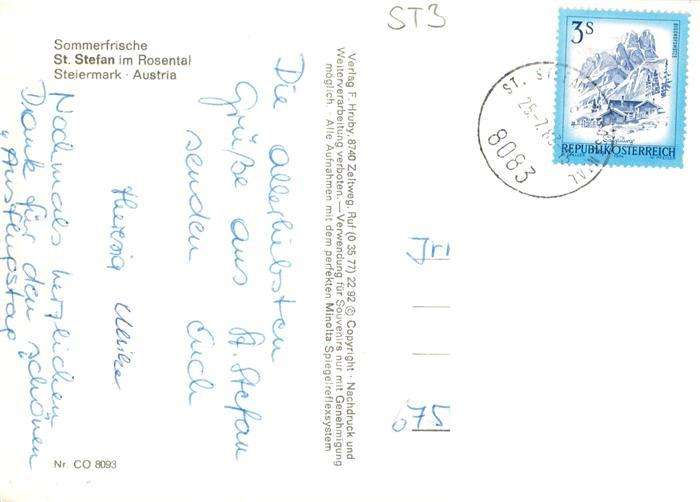 ST3
Sommerfrische
St. Stefan im Rosental
Steiermark · Austria
Die allerliebsten
Grüße aus St. Stefan
senden Euch
Theresia Ulrike
Nochmals herzlichen
Dank für den schönen
"Ausflugstag"
Nr. CO 8093
Verlag F. Hruby, 8740 Zeltweg, Ruf (0 35 77) 22 92 © Copyright · Nachdruck und
Weiterverarbeitung verboten. — Verwendung für Souvenirs nur mit Genehmigung
möglich. · Alle Aufnahmen mit dem perfekten Minolta Spiegelreflexsystem
3 S
REPUBLIK ÖSTERREICH
8083
675